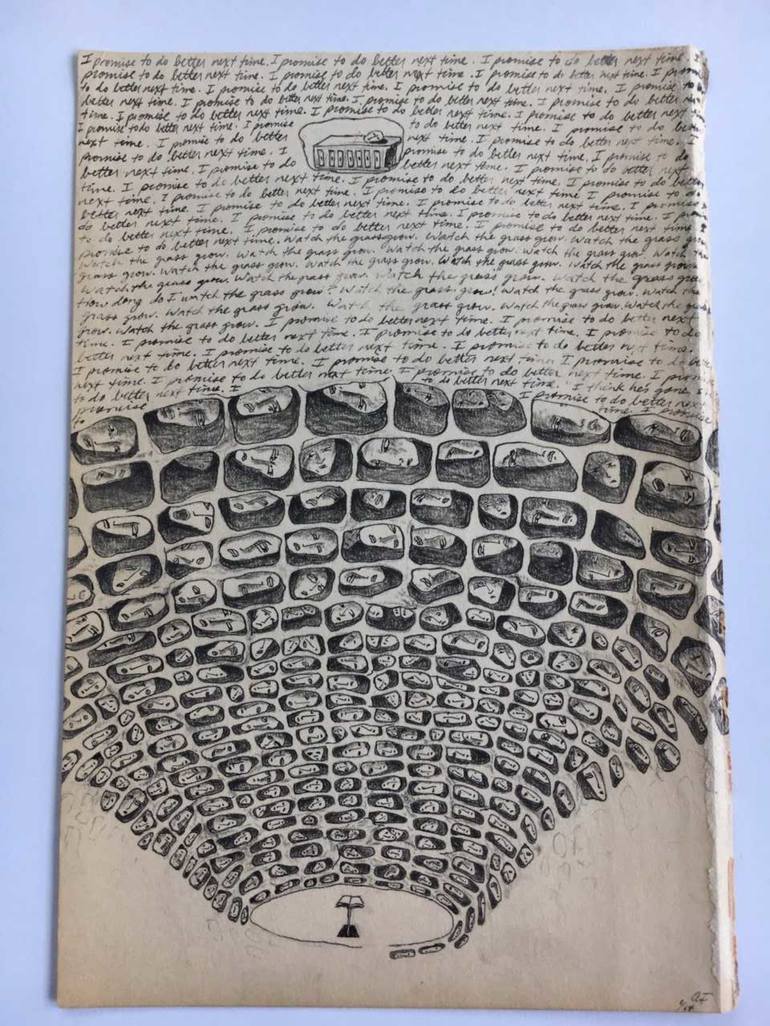 I promise to do better next time. I promise to do better next time. I promise to do better next time. I
promise to do better next time. I promise to do better next time. I promise to do better next time. I
to do better next time. I promise to do better next time. I promise to do better next time. I promise to
better next time. I promise to do better next time. I promise to do better next time. I promise to do better
time. I promise to do better next time. I promise to do better next time. I promise to do better next
I promise to do better next time. I promise to do better next time. I promise to do better
next time. I promise to do better promise to do better next time. I promise to do
promise to do better next time. I promise to do better next time. I promise to do
better next time. I promise to do better next time. I promise to do better next time. I promise to do better
time. I promise to do better next time. I promise to do better next time. I promise to do better
next time. I promise to do better next time. I promise to do better next time. I promise to do
better next time. I promise to do better next time. I promise to do better next time. I promise
do better next time. I promise to do better next time. I promise to do better next time. I
to do better next time. I promise to do better next time. I promise to do better next time
promise to do better next time. Watch the grass grow. Watch the grass grow. Watch the grass
Watch the grass grow. Watch the grass grow. Watch the grass grow. Watch the grass grow. Watch the
grass grow. Watch the grass grow. Watch the grass grow. Watch the grass grow. Watch the grass grow
Watch the grass grow. Watch the grass grow. Watch the grass grow. Watch the grass grow
How long do I watch the grass grow? Watch the grass grow! Watch the grass grow. Watch the
grass grow. Watch the grass grow. Watch the grass grow. Watch the grass grow. Watch the
grow. Watch the grass grow. I promise to do better next time. I promise to do better next
time. I promise to do better next time. I promise to do better next time. I promise to do
better next time. I promise to do better next time. I promise to do better next time.
I promise to do better next time. I promise to do better next time. I promise to do
next time. I promise to do better next time. I promise to do better next time. I
to do better next time. I to do better next time. "I think he's gone
promise I promise to do better next
to time. I promise
AF